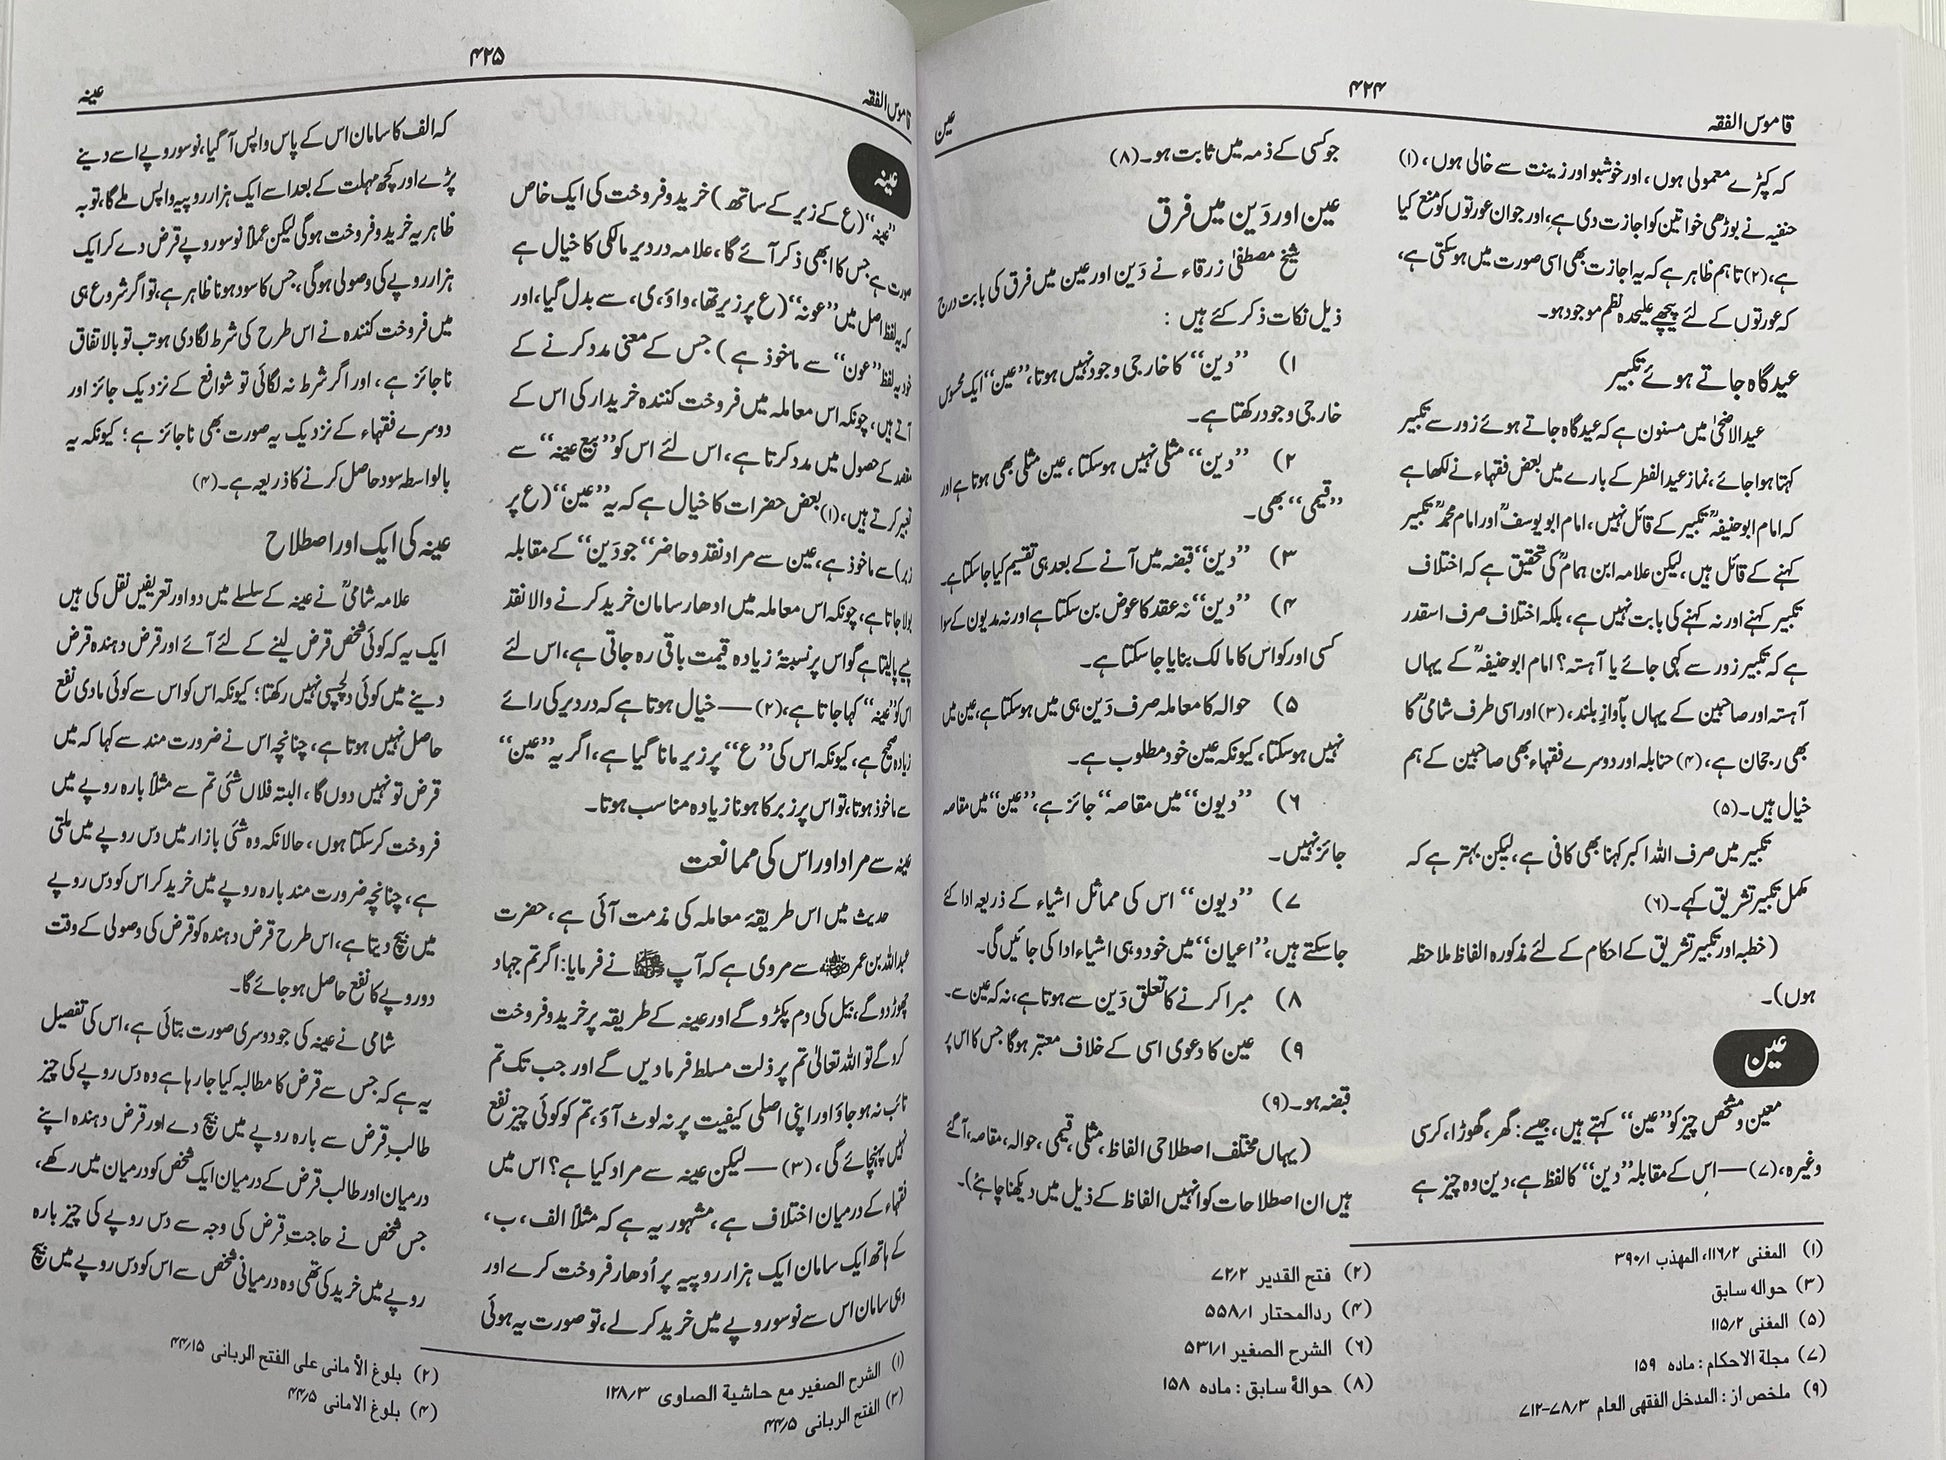 قاموس الفقہ
۴۲۴
عین
کہ کپڑے معمولی ہوں، اور خوشبو اور زینت سے خالی ہوں، (۱)
حنفیہ نے بوڑھی خواتین کو اجازت دی ہے، اور جوان عورتوں کو منع کیا
ہے، (۲) تاہم ظاہر ہے کہ یہ اجازت بھی اسی صورت میں ہو سکتی ہے،
کہ عورتوں کے لئے پیچھے علیحدہ نظم موجود ہو۔
عیدگاہ جاتے ہوئے تکبیر
عید الاضحیٰ میں مسنون ہے کہ عیدگاہ جاتے ہوئے زور سے تکبیر
کہتا ہوا جائے، نماز عید الفطر کے بارے میں بعض فقہاء نے لکھا ہے
کہ امام ابو حنیفہؒ تکبیر کے قائل نہیں، امام ابو یوسفؒ اور امام محمدؒ تکبیر
کہنے کے قائل ہیں، لیکن علامہ ابن ہمامؒ کی تحقیق ہے کہ اختلاف
تکبیر کہنے اور نہ کہنے کی بابت نہیں ہے، بلکہ اختلاف صرف اسقدر
ہے کہ تکبیر زور سے کہی جائے یا آہستہ؟ امام ابو حنیفہؒ کے یہاں
آہستہ اور صاحبین کے یہاں بآواز بلند، (۳) اور اسی طرف شامیؒ کا
بھی رجحان ہے، (۴) حنابلہ اور دوسرے فقہاء بھی صاحبین کے ہم
خیال ہیں۔ (۵)
تکبیر میں صرف اللہ اکبر کہنا بھی کافی ہے، لیکن بہتر ہے کہ
مکمل تکبیر تشریق کہے۔ (۶)
(خطبہ اور تکبیر تشریق کے احکام کے لئے مذکورہ الفاظ ملاحظہ
ہوں)۔
عین
معین و مشخص چیز کو ”عین“ کہتے ہیں، جیسے: گھر، گھوڑا، کرسی
وغیرہ، (۷) — اس کے مقابلہ ”دین“ کا لفظ ہے، دین وہ چیز ہے
جو کسی کے ذمہ میں ثابت ہو۔ (۸)
عین اور دَین میں فرق
شیخ مصطفیٰ زرقاء نے دَین اور عین میں فرق کی بابت درج
ذیل نکات ذکر کئے ہیں :
۱) ”دین“ کا خارجی وجود نہیں ہوتا، ”عین“ ایک محسوس
خارجی وجود رکھتا ہے۔
۲) ”دین“ مثلی نہیں ہو سکتا، عین مثلی بھی ہوتا ہے اور
”قیمی“ بھی۔
۳) ”دین“ قبضہ میں آنے کے بعد ہی تقسیم کیا جا سکتا ہے۔
۴) ”دین“ نہ عقد کا عوض بن سکتا ہے اور نہ مدیون کے سوا
کسی اور کو اس کا مالک بنایا جا سکتا ہے۔
۵) حوالہ کا معاملہ صرف دَین ہی میں ہو سکتا ہے، عین میں
نہیں ہو سکتا، کیونکہ عین خود مطلوب ہے۔
۶) ”دیون“ میں مقاصہ“ جائز ہے، ”عین“ میں مقاصہ
جائز نہیں۔
۷) ”دیون“ اس کی مماثل اشیاء کے ذریعہ ادا کئے
جا سکتے ہیں، ”اعیان“ میں خود وہی اشیاء ادا کی جائیں گی۔
۸) مبرا کرنے کا تعلق دَین سے ہوتا ہے، نہ کہ عین سے۔
۹) عین کا دعوی اسی کے خلاف معتبر ہوگا جس کا اس پر
قبضہ ہو۔ (۹)
(یہاں مختلف اصطلاحی الفاظ، مثلی، قیمی، حوالہ، مقاصہ، آگئے
ہیں ان اصطلاحات کو انہیں الفاظ کے ذیل میں دیکھنا چاہئے)۔
(۱) المغنی ۱۱۶/۲، المهذب ۳۹۰/۱
(۲) فتح القدیر ۷۲/۲
(۳) حوالہ سابق
(۴) ردالمحتار ۵۵۸/۱
(۵) المغنی ۱۱۵/۲
(۶) الشرح الصغیر ۵۳۱/۱
(۷) مجلة الاحكام : ماده ۱۵۹
(۸) حوالۂ سابق : ماده ۱۵۸
(۹) ملخص از : المدخل الفقهی العام ۷۸/۳-۷۱۲
قاموس الفقہ
۴۲۵
عینہ
عینہ
”عینہ“ (ع کے زیر کے ساتھ) خرید و فروخت کی ایک خاص
صورت ہے جس کا ابھی ذکر آئے گا، علامہ دردیر مالکی کا خیال ہے
کہ یہ لفظ اصل میں ”عونہ“ (ع پر زیر تھا، واؤ، ی، سے بدل گیا، اور
خود یہ لفظ ”عون“ سے ماخوذ ہے) جس کے معنی مدد کرنے کے
آتے ہیں، چونکہ اس معاملہ میں فروخت کنندہ خریدار کی اس کے
مقصد کے حصول میں مدد کرتا ہے، اس لئے اس کو ”بیع عینہ“ سے
تعبیر کرتے ہیں، (۱) بعض حضرات کا خیال ہے کہ یہ ”عین“ (ع پر
زبر) سے ماخوذ ہے، عین سے مراد نقد و حاضر“ جو دَین“ کے مقابلہ
بولا جاتا ہے، چونکہ اس معاملہ میں ادھار سامان خرید کرنے والا نقد
پیسے پالیتا ہے گو اس پر نسبتۂ زیادہ قیمت باقی رہ جاتی ہے، اس لئے
اس کو ”عینہ“ کہا جاتا ہے، (۲) — خیال ہوتا ہے کہ دردیر کی رائے
زیادہ صحیح ہے، کیونکہ اس کی ”ع“ پر زیر مانا گیا ہے، اگر یہ ”عین“
سے ماخوذ ہوتا، تو اس پر زبر کا ہونا زیادہ مناسب ہوتا۔
عینہ سے مراد اور اس کی ممانعت
حدیث میں اس طریقۂ معاملہ کی مذمت آئی ہے، حضرت
عبداللہ بن عمرؓ سے مروی ہے کہ آپ ﷺ نے فرمایا: اگر تم جہاد
چھوڑ دو گے، بیل کی دم پکڑو گے اور عینہ کے طریقہ پر خرید و فروخت
کرو گے تو اللہ تعالیٰ تم پر ذلت مسلط فرمادیں گے اور جب تک تم
تائب نہ ہو جاؤ اور اپنی اصلی کیفیت پر نہ لوٹ آؤ، تم کو کوئی چیز نفع
نہیں پہنچائے گی، (۳) — لیکن عینہ سے مراد کیا ہے؟ اس میں
فقہاء کے درمیان اختلاف ہے، مشہور یہ ہے کہ مثلاً الف، ب،
کے ہاتھ ایک سامان ایک ہزار روپیہ پر اُدھار فروخت کرے اور
وہی سامان اس سے نو سو روپے میں خرید کر لے، تو صورت یہ ہوئی
کہ الف کا سامان اس کے پاس واپس آگیا، نو سو روپے اسے دینے
پڑے اور کچھ مہلت کے بعد اسے ایک ہزار روپیہ واپس ملے گا، تو بہ
ظاہر یہ خرید و فروخت ہوگی لیکن عملاً نو سو روپے قرض دے کر ایک
ہزار روپے کی وصولی ہوگی، جس کا سود ہونا ظاہر ہے، تو اگر شروع ہی
میں فروخت کنندہ نے اس طرح کی شرط لگادی ہو تب تو بالاتفاق
ناجائز ہے، اور اگر شرط نہ لگائی تو شوافع کے نزدیک جائز اور
دوسرے فقہاء کے نزدیک یہ صورت بھی ناجائز ہے؛ کیونکہ یہ
بالواسطہ سود حاصل کرنے کا ذریعہ ہے۔ (۴)
عینہ کی ایک اور اصطلاح
علامہ شامیؒ نے عینہ کے سلسلے میں دو اور تعریفیں نقل کی ہیں
ایک یہ کہ کوئی شخص قرض لینے کے لئے آئے اور قرض دہندہ قرض
دینے میں کوئی دلچسپی نہیں رکھتا؛ کیونکہ اس کو اس سے کوئی مادی نفع
حاصل نہیں ہوتا ہے، چنانچہ اس نے ضرورت مند سے کہا کہ میں
قرض تو نہیں دوں گا، البتہ فلاں شئی تم سے مثلاً بارہ روپے میں
فروخت کر سکتا ہوں، حالانکہ وہ شئی بازار میں دس روپے میں ملتی
ہے، چنانچہ ضرورت مند بارہ روپے میں خرید کر اس کو دس روپے
میں بیچ دیتا ہے، اس طرح قرض دہندہ کو قرض کی وصولی کے وقت
دو روپے کا نفع حاصل ہو جائے گا۔
شامی نے عینہ کی جو دوسری صورت بتائی ہے، اس کی تفصیل
یہ ہے کہ جس سے قرض کا مطالبہ کیا جا رہا ہے وہ دس روپے کی چیز
طالبِ قرض سے بارہ روپے میں بیچ دے اور قرض دہندہ اپنے
درمیان اور طالب قرض کے درمیان ایک شخص کو درمیان میں رکھے،
جس شخص نے حاجتِ قرض کی وجہ سے دس روپے کی چیز بارہ
روپے میں خرید کی تھی وہ درمیانی شخص سے اس کو دس روپے میں بیچ
(۱) الشرح الصغیر مع حاشیة الصاوی ۱۲۸/۳
(۲) بلوغ الأمانی علی الفتح الربانی ۴۴/۱۵
(۳) الفتح الربانی ۴۴/۵
(۴) بلوغ الامانی ۴۴/۵